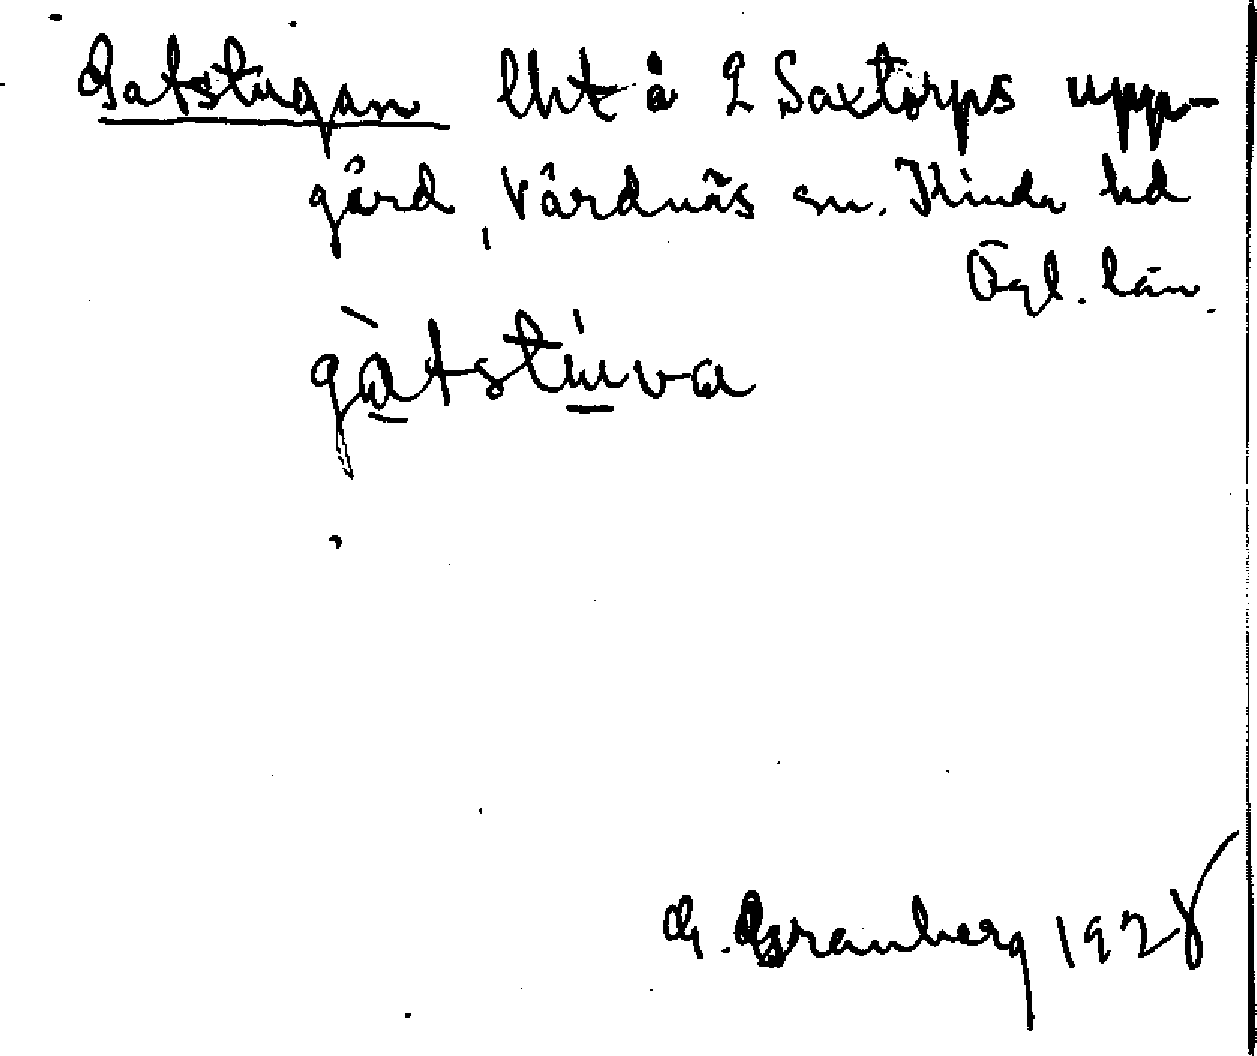 Gatstugan lht å 2 Saxtorps upp-
gård, Vårdnäs sn. Kinda hd
Ögl. län.
gàtstúva
G. Granberg 1928